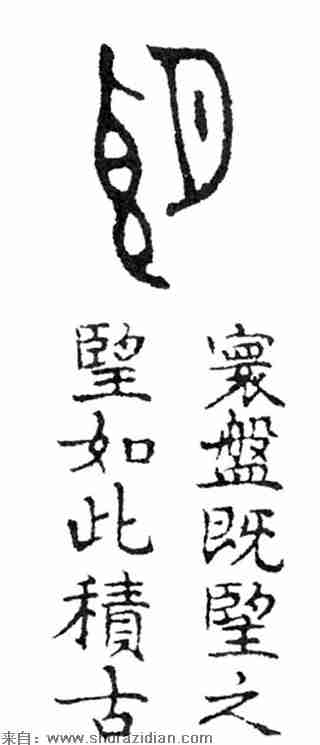 寰盤既朢之
朢如此積古
来自: www.shufazidian.com